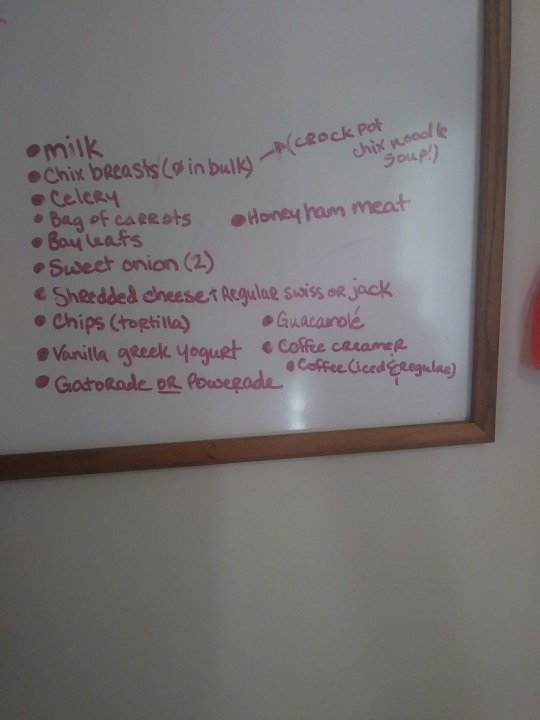 • milk
• Chix breasts (∅ in bulk) → (crock pot
chix noodle
soup!)
• Celery
• Bag of carrots • Honey ham meat
• Bay leafs
• Sweet onion (2)
• Shredded cheese + Regular swiss or jack
• Chips (tortilla) • Guacamolé
• Vanilla greek yogurt • Coffee creamer
• Coffee (iced & regular)
• Gatorade OR Powerade